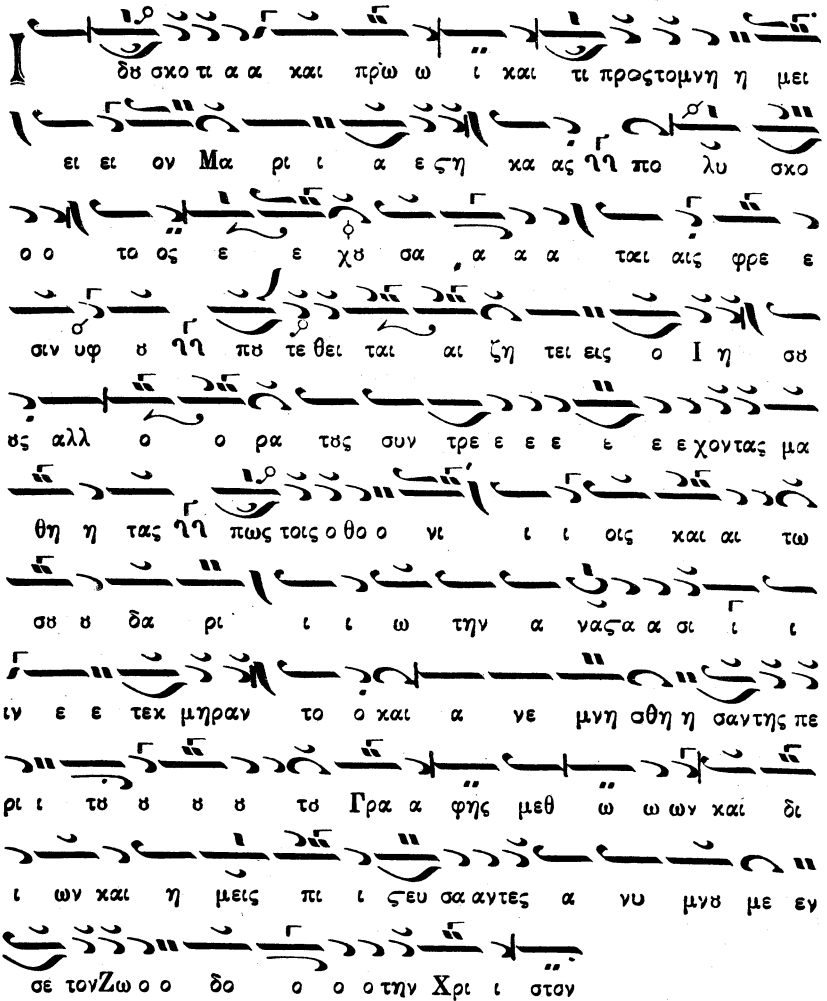 Ι δȣ σκο τι α α και πρω ω ι και τι προςτομνη η μει
ει ει ον Μα ρι ι α ε ςη κα ας πο λυ σκο
ο ο το ος ε ε χȣ σα α α α ται αις φρε ε
σιν υφ ȣ πȣ τε θει ται αι ζη τει εις ο Ι η σȣ
ȣς αλλ ο ο ρα τȣς συν τρε ε ε ε ε ε ε χοντας μα
θη η τας πως τοις ο θο ο νι ι ι οις και αι τω
σȣ ȣ δα ρι ι ι ω την α νας α α σι ι ι
ιν ε ε τεκ μηραν το ο και α νε μνη σθη η σαντης πε
ρι ι τȣ ȣ ȣ ȣ τȣ Γρα α φης μεθ ω ω ων και δι
ι ων και η μεις πι ι ςευ σα αντες α νυ μνȣ με εν
σε τονΖω ο ο δο ο ο ο την Χρι ι στον